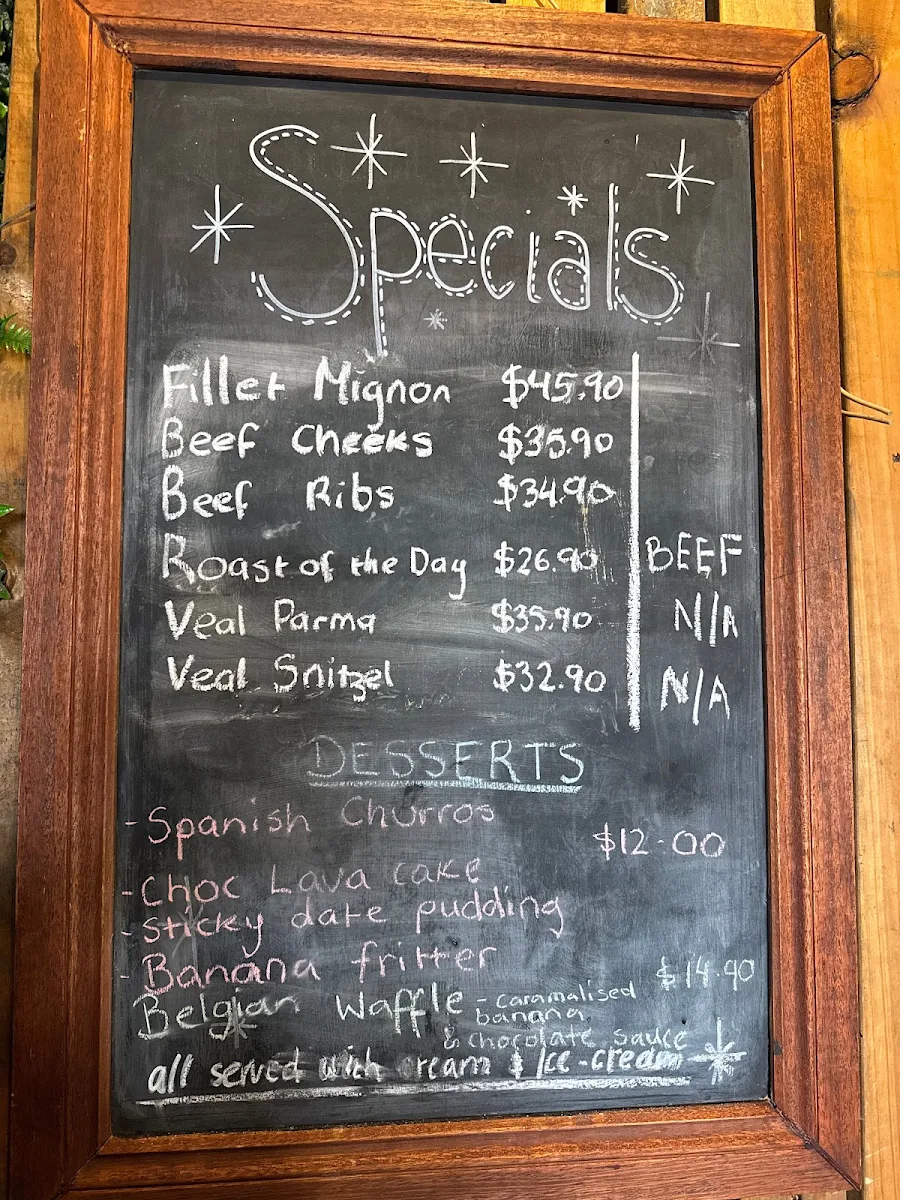 Specials
Fillet Mignon $45.90
Beef Cheeks $35.90
Beef Ribs $34.90
Roast of the Day $26.90 BEEF
Veal Parma $35.90 N/A
Veal Snitzel $32.90 N/A
DESSERTS
- Spanish Churros
$12.00
- Choc Lava cake
- sticky date pudding
- Banana fritter
Belgian Waffle - caramalised $14.90
banana
& chocolate sauce
all served with cream & Ice-cream